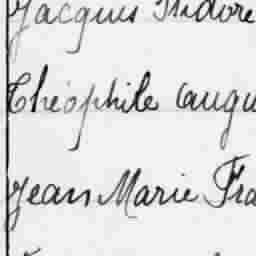 Jacques Isidore
Théophile Augu
Jean Marie Fra